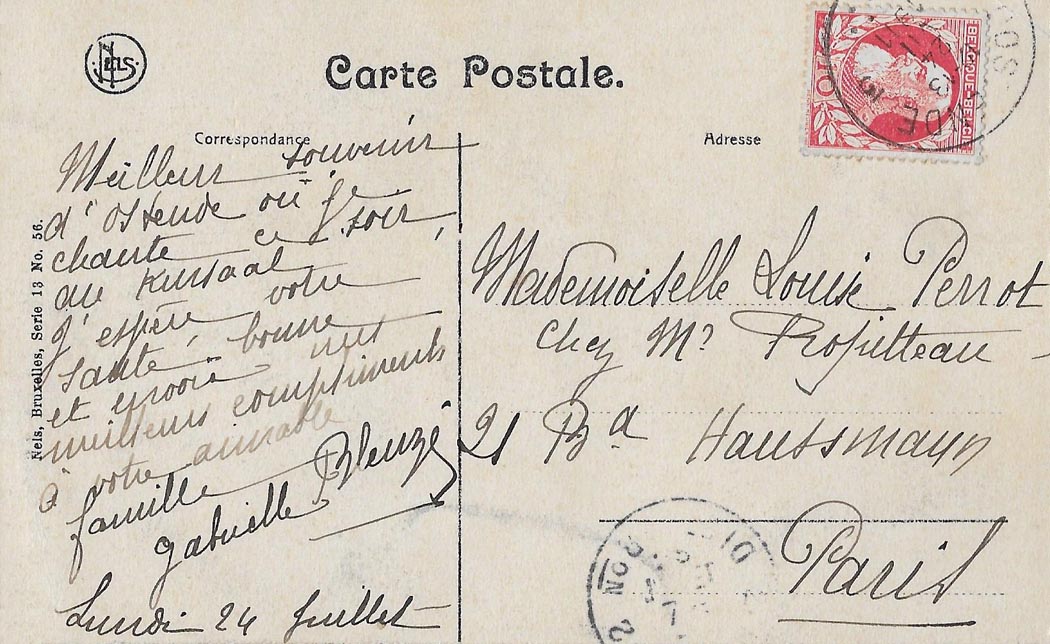 NELS
Carte Postale.
Correspondance
Adresse
BELGIQUE-BELGIË
Meilleur souvenir
d'Ostende où je
chante ce soir,
au Kursaal
J'espère votre
santé, bonne
et envoie mes
meilleurs compliments
à votre aimable
famille
Gabrielle
Lundi 24 Juillet
Nels, Bruxelles, Serie 13 No. 56.
Mademoiselle Louise Perrot
Chez Mr
21 Bd Haussmann
Paris